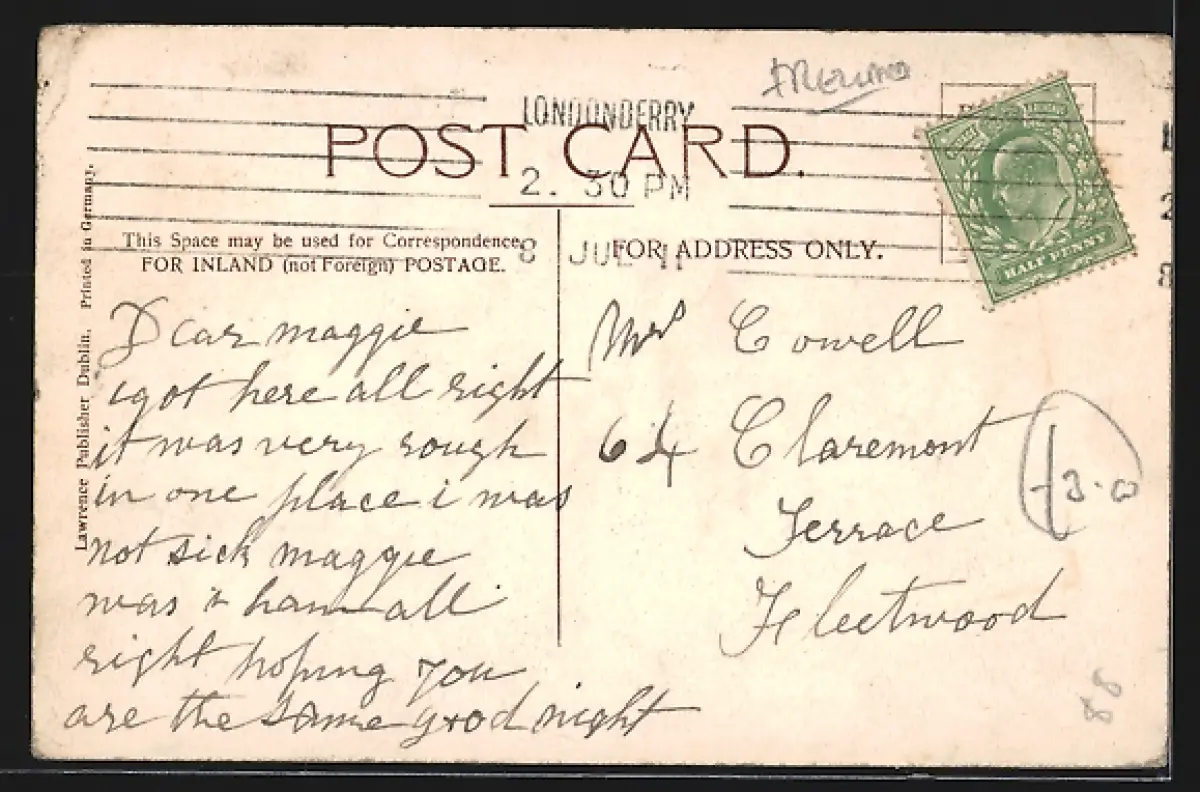 IRELAND
LONDONDERRY
POST CARD.
2. 30 PM
8 JUL 11
This Space may be used for Correspondence
FOR INLAND (not Foreign) POSTAGE.
FOR ADDRESS ONLY.
HALF PENNY
Lawrence Publisher Dublin. Printed in Germany.
Dear maggie
i got here all right
it was very rough
in one place i was
not sick maggie
was i ham all
right hoping you
are the same good night
Mrs Cowell
64 Claremont
Terrace
Fleetwood
3.0
88